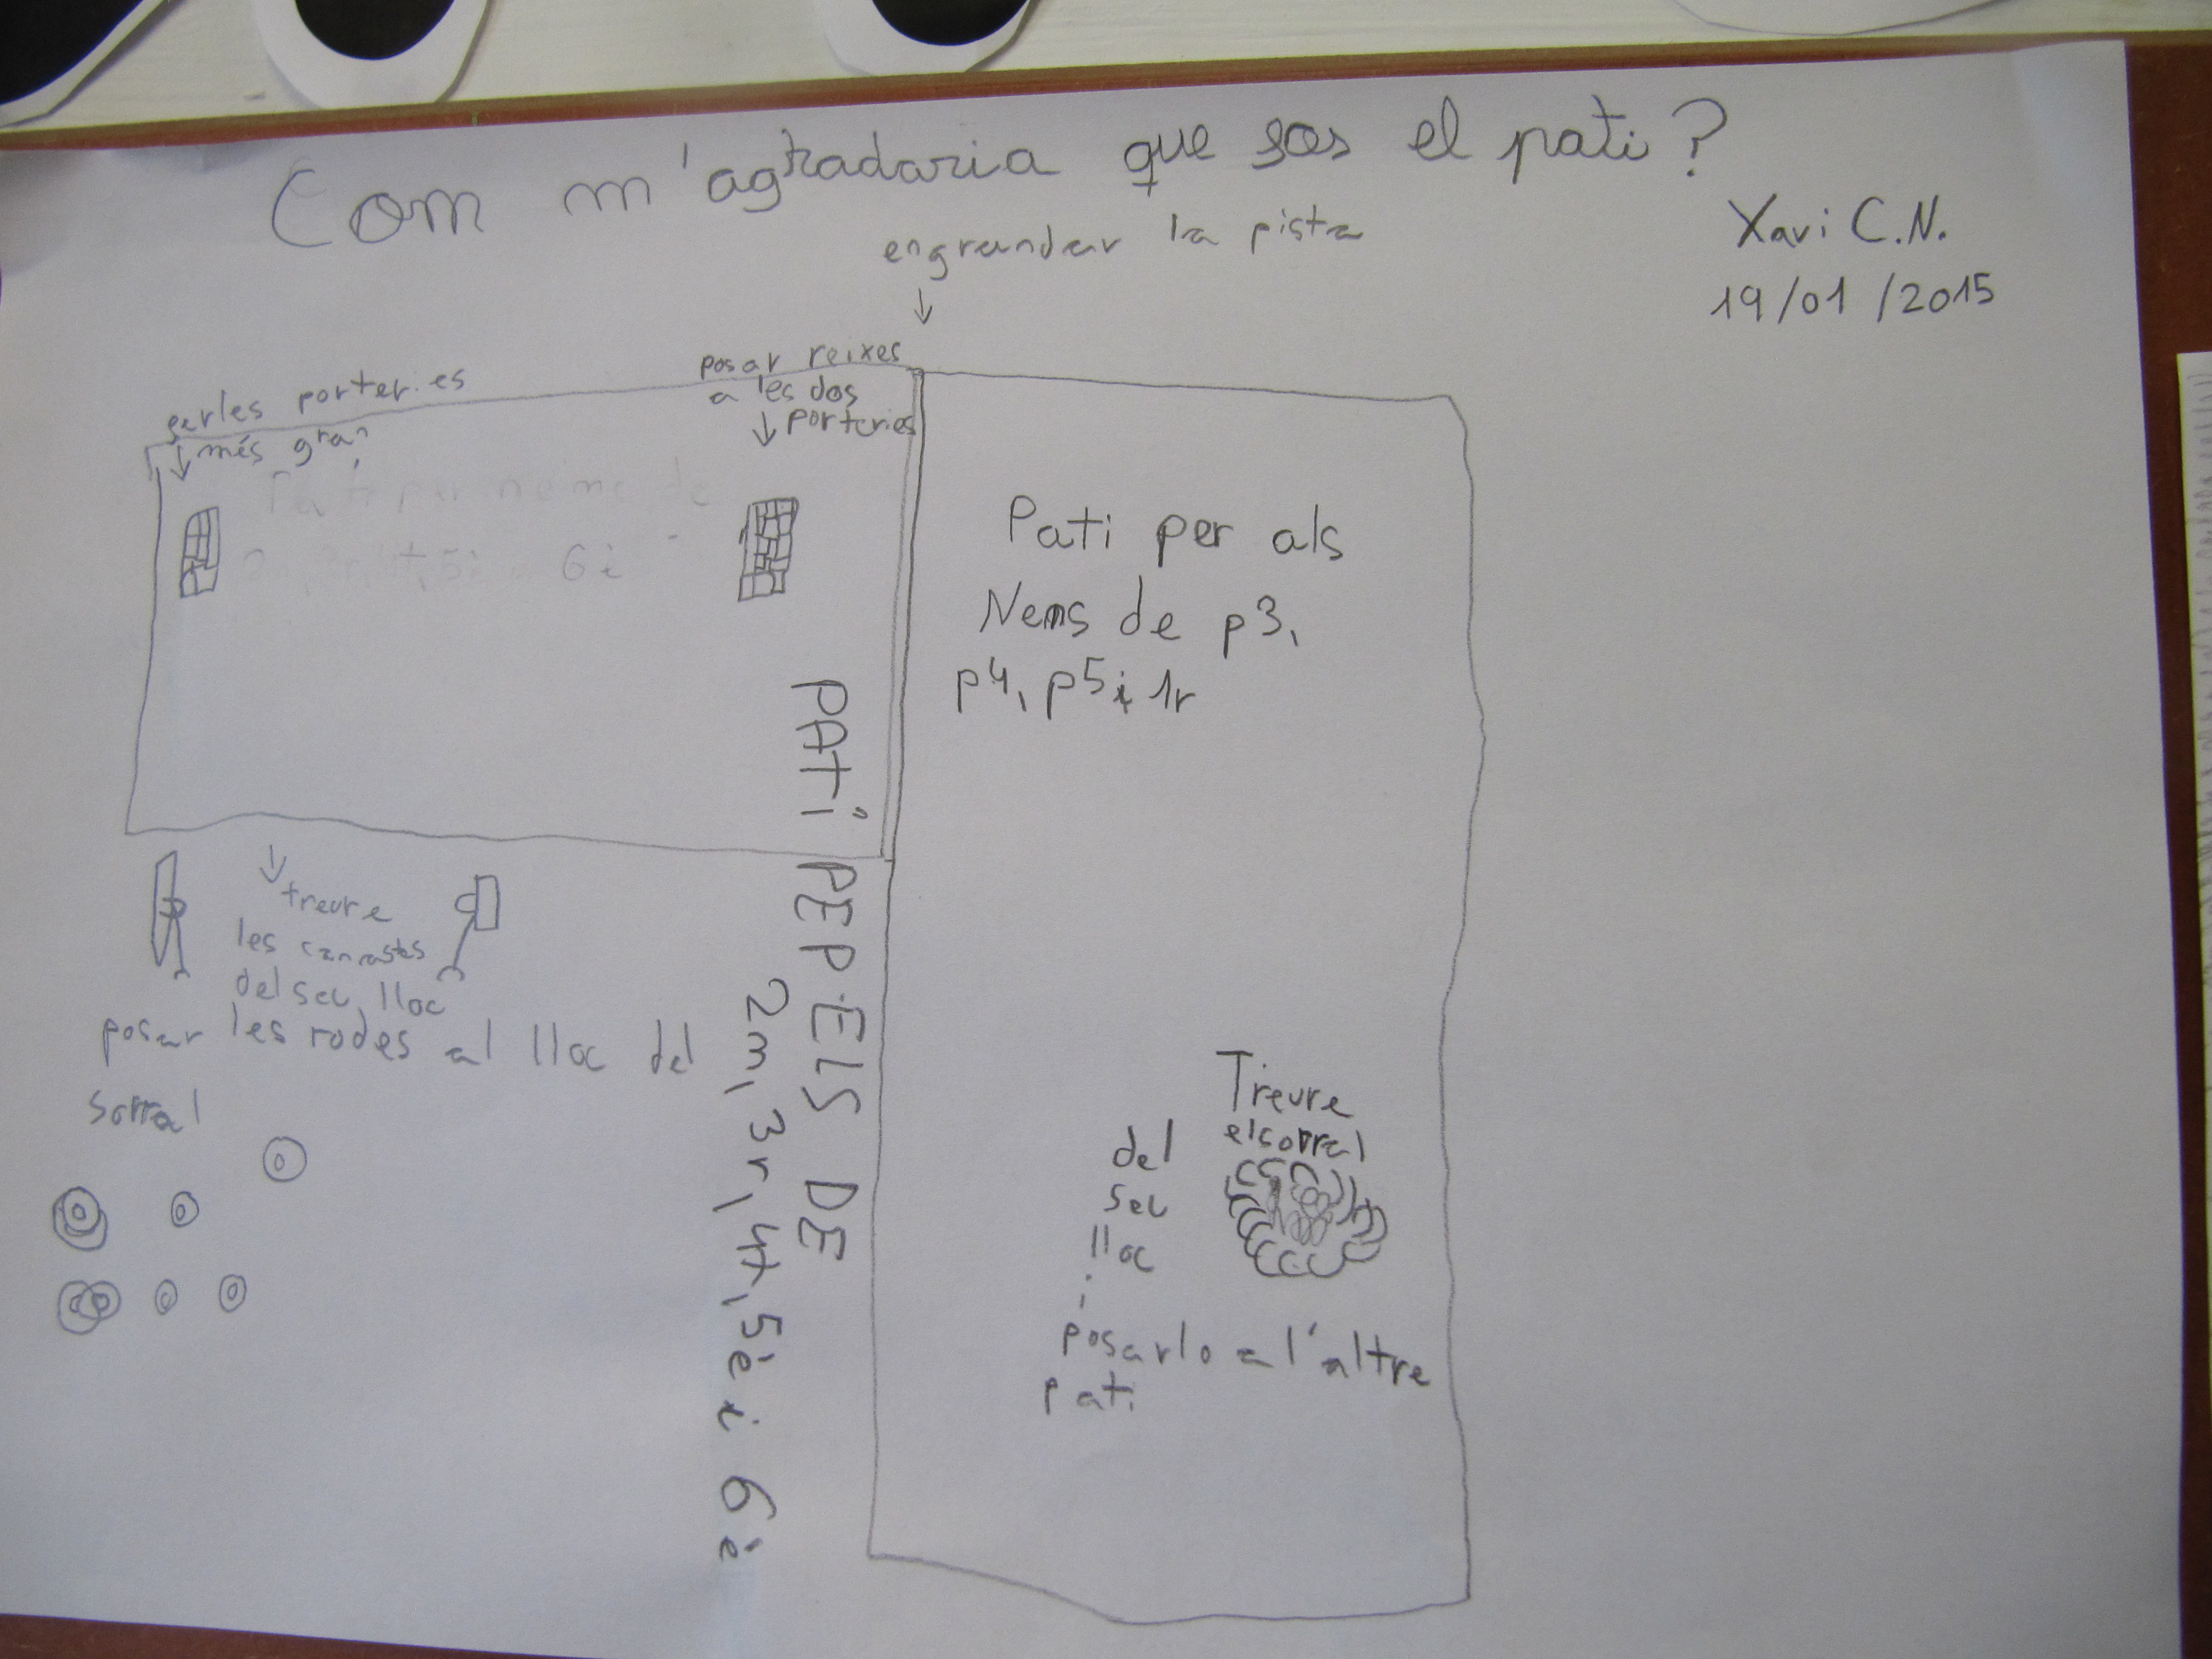 Com m'agradaria que sos el pati?
Xavi C.N.
19/01/2015
engrandar la pista
posar reixes
a les dos
porteries
ferles porteries
més gran
Pati per nems de
4t, 5è 6è
Pati per als
Nens de p3,
p4, p5 i 1r
PATi PEP ELS DE
2m, 3r, 4t, 5è i 6è
treure
les canastes
del seu lloc
posar les rodes al lloc del
sorral
Treure
el sorral
del
seu
lloc
i
posarlo a l'altre
pati